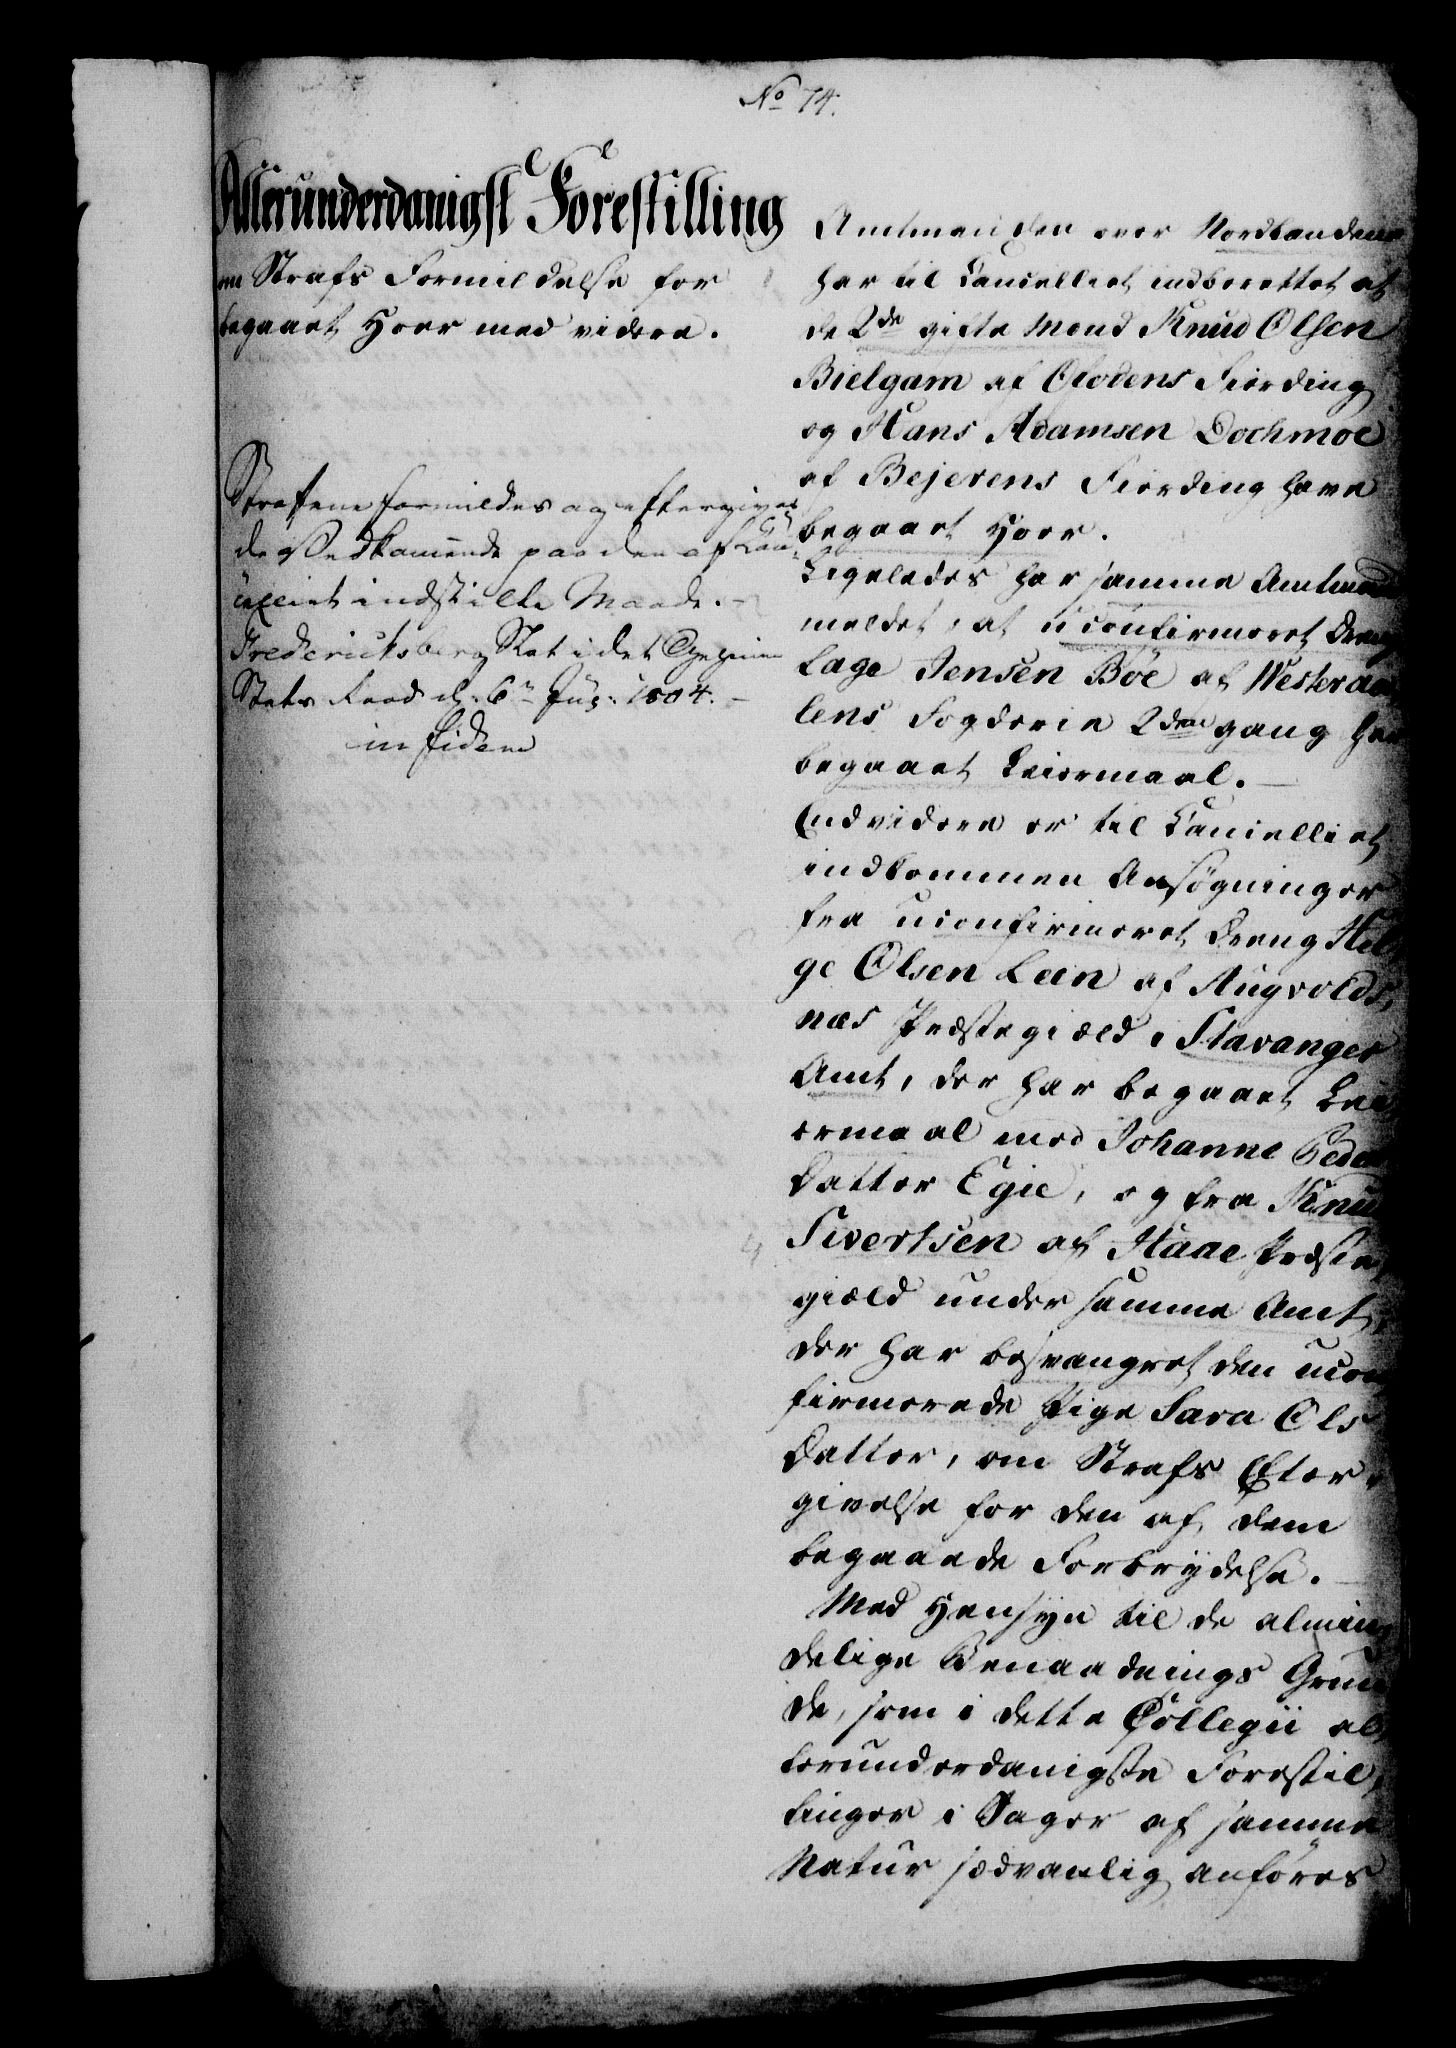 No 74.
Allerunderdanigst Forestilling
om Strafs Formildelse for
begaaet Hoer med videre.
Straffene formildes og eftergives
de Vedkommende paa den af Can-
celliet indstilte Maade. -
Fredericksberg Slot i det Geheime
Stats Raad d. 6te July 1804. -
in fidem
Amtmanden over Nordlandene
har til Cancelliet indberettet at
de 2de gifte Mænd Knud Olsen
Bielgam af Ofodens Fierding
og Hans Adamsen Dochmoe
af Bejerens Fierding have
begaaet Hoer.
Ligeledes har samme Amtmand
meldet, at uconfirmeret Dreng
Lage Jensen Böe af Westeraa-
lens Fogderie 2den gang har
begaaet Leiermaal. -
Endvidere er til Cancelliet
indkommen Ansøgninger
fra uconfirmeret Dreng Hel-
ge Olsen Leen af Augvolds-
næs Præstegield i Stavanger
Amt, der har begaaet Lei-
ermaal med Johanne Peders
Datter Egie, og fra Knud
Sivertsen af Haae Præste-
gield under samme Amt,
der har besvangret den ucon-
firmerede Pige Sara Ols
Datter, om Strafs Efter-
givelse for den af dem
begaaede Forbrydelse. -
Med Hensyn til de almin-
delige Benaadnings Grun-
de, som i dette Collegii al-
lerunderdanigste Forestil-
linger i Sager af samme
Natur sædvanlig anføres